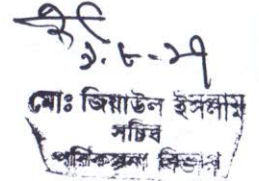 ৯.৮-১৭
মোঃ জিয়াউল ইসলাম
সচিব
পরিকল্পনা বিভাগ